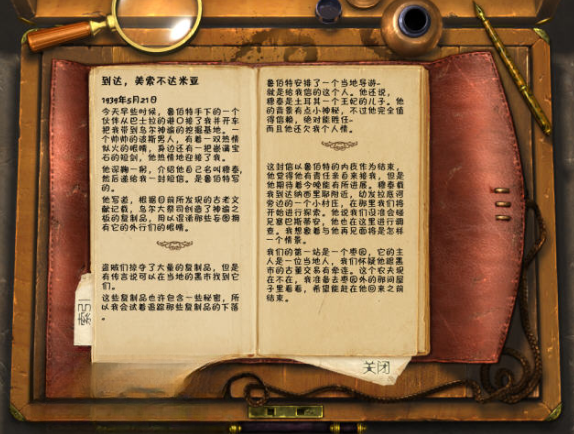 到达,美索不达米亚
1939年5月21日
今天早些时候,鲁伯特手下的一个
伙伴从巴士拉的港口接了我并开车
把我带到乌尔神庙的挖掘基地。一
个帅帅的波斯男人,有着一双热情
似火的眼睛,身边还有一把嵌满宝
石的短剑,他热情地迎接了我。
他深鞠一躬,介绍他自己名叫穆泰,
然后递给我一封短信。是鲁伯特写
的。
他写道,根据目前所发现的古老文
献记载,乌尔大祭司创造了神庙之
板的复制品,用以迷惑那些妄图拥
有它的外行们的眼睛。
盗贼们掠夺了大量的复制品,但是
有传言说可以在当地的黑市找到它
们。
这些复制品也许包含一些秘密,所
以我会试着追踪那些复制品的下落
。
鲁伯特安排了一个当地导游-
就是给我信的这个人。他还说,
穆泰是土耳其一个王妃的儿子。他
的背景有点小神秘,不过他完全值
得信赖,绝对能胜任-
而且他还欠我个人情。
这封信以鲁伯特的内疚作为结束,
他觉得他有责任亲自来接我,但是
他期待着今晚能有所进展。穆泰载
我到达纳西里耶附近,幼发拉底河
旁边的一个小村庄,在那里我们将
开始进行探索。他说我们没准会碰
见塞巴斯蒂安,他也在这里进行调
查。我想象着与他再见面将是怎样
一个情景。
我们的第一站是一个枣园,它的主
人是一位当地人,我们怀疑他跟黑
市的古董交易有牵连。这个农夫现
在不在,我准备去枣园外的那间屋
子里看看,希望能赶在他回来之前
结束。
索引
关闭